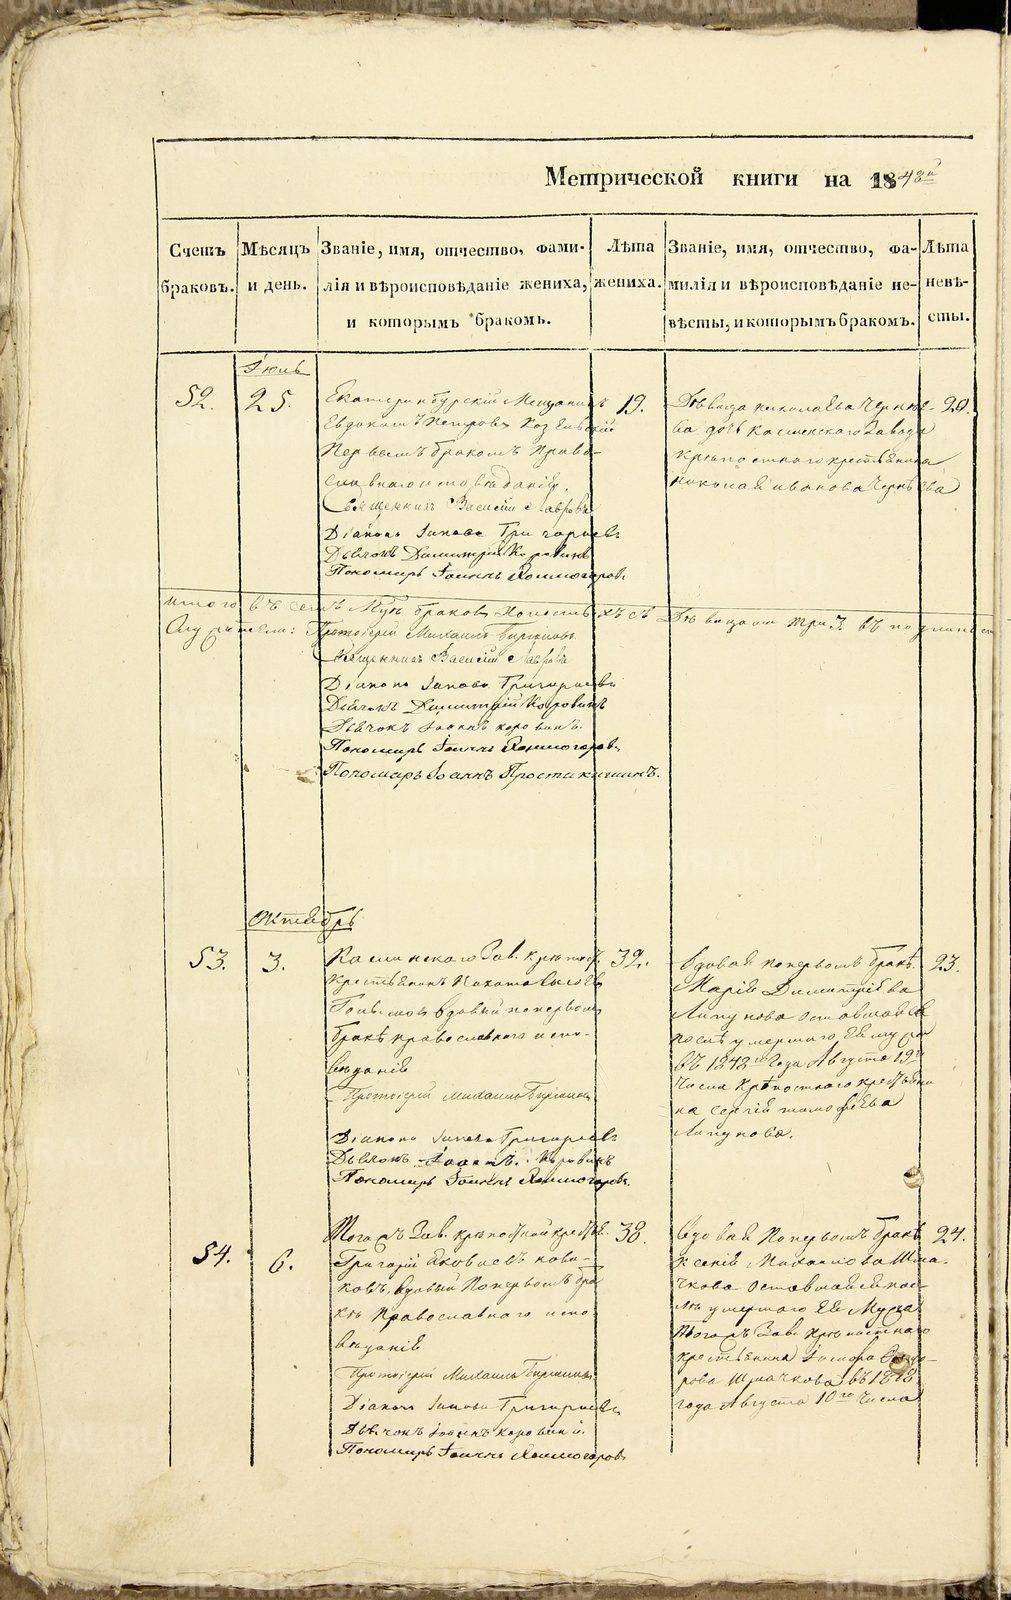 Метрической книги на 1848й
Счетъ браковъ.
Мѣсяцъ и день.
Званіе, имя, отчество, фами-
лія и вѣроисповѣданіе жениха,
и которымъ бракомъ.
Лѣта
жениха.
Званіе, имя, отчество, фа-
милія и вѣроисповѣданіе не-
вѣсты, и которымъ бракомъ.
Лѣта
невѣ-
сты.
Іюль
52.
25.
Екатеринбурскій Мещанинъ
Евдокимъ Петровъ
Первымъ бракомъ Право-
славнаго исповѣданія.
Священникъ Василій Лавровъ
Діаконъ Іаковъ Григорьевъ
Дьячокъ Димитрій Коровинъ
Пономарь Іоаннъ Холмогоровъ
19.
Дѣвица Николаева Черные-
ва дочь Каслинскаго Завода
крѣпостнаго крестьянина
Николая Иванова Чернѣева
20.
Итого въ семъ браковъ холостыхъ съ Дѣвицами три 3. въ
Протоіерей Михаилъ
Священникъ Василій Лавровъ
Діаконъ Іаковъ Григорьевъ
Дьячокъ Димитрій Коровинъ
Дьячокъ Іоаннъ Коровинъ.
Пономарь Іоаннъ Холмогоровъ
Пономарь Іоаннъ
Октябрь
53.
3.
Каслинскаго Зав. крѣпост.
крестьянинъ
вдовый по первомъ
бракѣ православнаго испо-
вѣданія
Протоіерей Михаилъ
Діаконъ Іаковъ Григорьевъ
Дьячокъ Іоаннъ Коровинъ
Пономарь Іоаннъ Холмогоровъ
32.
Вдовая по первомъ бракѣ
Марія Димитріева
Липунова оставшаяся
послѣ умершаго ея мужа
въ 1848м года Августа 19го
числа крѣпостнаго крестьяни-
на Сергія Тимофѣева
Липунова.
23.
54.
6.
Тогожъ Зав. крѣпостной крестья.
Григорій Яковлевъ Нови-
ковъ, вдовый по первомъ бра-
кѣ Православнаго испо-
вѣданія
Протоіерей Михаилъ
Діаконъ Іаковъ Григорьевъ
Дьячокъ Іоаннъ Коровинъ.
Пономарь Іоаннъ Холмогоровъ
38.
Вдовая по первомъ бракѣ
Ксенія Михаилова
оставшаяся пос-
лѣ умершаго ея Мужа
тогожъ Зав. крѣпостнаго
крестьянина
въ 1848
года Августа 10го числа
24.
METRIKI.GASO-URAL.RU